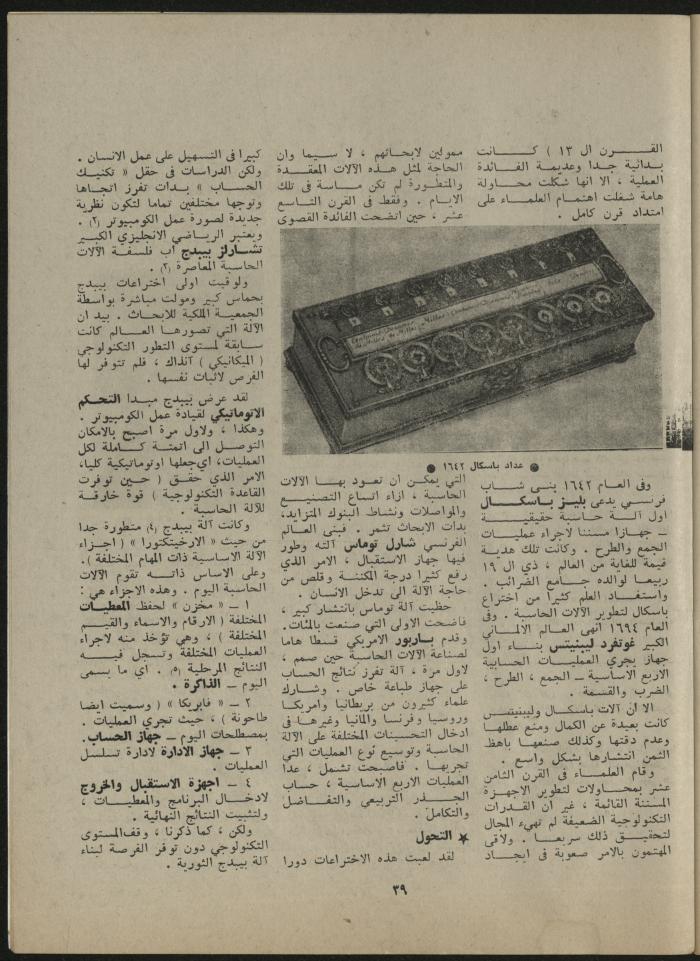 القرن ال ١٣ ) كانت
بدائية جدا وعديمة الفائدة
العملية ، الا انها شكلت محاولة
هامة شغلت اهتمام العلماء على
امتداد قرن كامل .
● عداد باسكال ١٦٤٢ ●
وفى العام ١٦٤٢ بنى شاب
فرنسي يدعى بليز باسكال
اول آلة حاسبة حقيقية
ــ جهازا مسننا لاجراء عمليات
الجمع والطرح . وكانت تلك هدية
قيمة للغاية من العالم ، ذي ال ١٩
ربيعا لوالده جامع الضرائب .
واستفاد العلم كثيرا من اختراع
باسكال لتطوير الآلات الحاسبة . وفى
العام ١٦٩٤ أنهى العالم الالماني
الكبير غوتفرد ليبنيتس بناء اول
جهاز يجري العمليات الحسابية
الاربع الاساسية ــ الجمع ، الطرح ،
الضرب والقسمة .
الا ان آلات باسكال وليبنيتس
كانت بعيدة عن الكمال ومنع عطلها
وعدم دقتها وكذلك صنعها باهظ
الثمن انتشارها بشكل واسع .
وقام العلماء في القرن الثامن
عشر بمحاولات لتطوير الاجهزة
المسننة القائمة ، غير أن القدرات
التكنولوجية الضعيفة لم تهيء المجال
لتحقيق ذلك سريعا . ولاقى
المهتمون بالامر صعوبة فى ايجاد
ممولين لابحاثهم ، لا سيما وان
الحاجة لمثل هذه الآلات المعقدة
والمتطورة لم تكن ماسة فى تلك
الايام . وفقط فى القرن التاسع
عشر ، حين اتضحت الفائدة القصوى
التي يمكن ان تعود بها الآلات
الحاسبة ، ازاء اتساع التصنيع
والمواصلات ونشاط البنوك المتزايد،
بدات الابحاث تثمر . فبنى العالم
الفرنسي شارل توماس آلته وطور
فيها جهاز الاستقبال ، الامر الذي
رفع كثيرا درجة المكننة وقلص من
حاجة الآلة الى تدخل الانسان .
حظيت آلة توماس بانتشار كبير ،
فاضحت الاولى التي صنعت بالمئات.
وقدم باربور الامريكي قسطا هاما
لصناعة الآلات الحاسبة حين صمم ،
لاول مرة ، آلة تفرز نتائج الحساب
على جهاز طباعة خاص . وشارك
علماء كثيرون من بريطانيا وامريكا
وروسيا وفرنسا والمانيا وغيرها فى
ادخال التحسينات المختلفة على الآلة
الحاسبة وتوسيع نوع العمليات التي
تجريها . فاصبحت تشمل ، عدا
العمليات الاربع الاساسية ، حساب
الجذر التربيعي والتفاضل
والتكامل .
★ التحول
لقد لعبت هذه الاختراعات دورا
كبيرا فى التسهيل على عمل الانسان .
ولكن الدراسات في حقل « تكنيك
الحساب » بدات تفرز اتجاها
وتوجها مختلفين تماما لتكون نظرية
جديدة لصورة عمل الكومبيوتر (٢) .
ويعتبر الرياضي الانجليزي الكبير
تشارلز بيبدج أب فلسفة الآلات
الحاسبة المعاصرة (٣) .
ولوقيت اولى اختراعات بيبدج
بحماس كبير ومولت مباشرة بواسطة
الجمعية الملكية للابحاث . بيد ان
الآلة التي تصورها العالم كانت
سابقة لمستوى التطور التكنولوجي
( الميكانيكي ) آنذاك ، فلم تتوفر لها
الفرص لاثبات نفسها .
لقد عرض بيبدج مبدا التحكم
الاتوماتيكي لقيادة عمل الكومبيوتر .
وهكذا ، ولاول مرة اصبح بالامكان
التوصل الى اتمتة كاملة لكل
العمليات، اي جعلها اوتوماتيكية كليا،
الامر الذي حقق ( حين توفرت
القاعدة التكنولوجية ) قوة خارقة
للآلة الحاسبة .
وكانت آلة بيبدج (٤) متطورة جدا
من حيث « الارخيتكتورا » ( اجزاء
الآلة الاساسية ذات المهام المختلفة ).
وعلى الاساس ذاته تقوم الآلات
الحاسبة اليوم . وهذه الاجزاء هي :
١ ــ « مخزن » لحفظ المعطيات
المختلفة ( الارقام والاسماء والقيم
المختلفة ) ، وهي تؤخذ منه لاجراء
العمليات المختلفة وتسجل فيه
النتائج المرحلية (٥) . اي ما يسمى
اليوم ــ الذاكرة .
٢ ــ « فابريكا » ( وسميت ايضا
طاحونة ) ، حيث تجري العمليات .
بمصطلحات اليوم ــ جهاز الحساب.
٣ ــ جهاز الادارة لادارة تسلسل
العمليات .
٤ ــ اجهزة الاستقبال والخروج
لادخال البرنامج والمعطيات ،
ولتثبيت النتائج النهائية .
ولكن ، كما ذكرنا ، وقف المستوى
التكنولوجي دون توفر الفرصة لبناء
آلة بيبدج الثورية .
٣٩